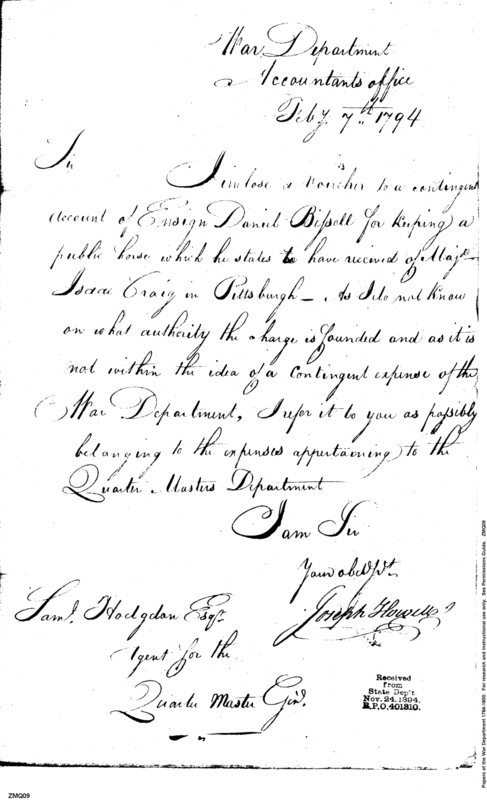 War Department
Accountants office
Feby. 7th. 1794
Sir
I inclose a voucher to a contingent
account of Ensign Daniel Bissell for keeping a
public horse which he states to have received of Majr.
Isaac Craig in Pittsburgh – As I do not know
on what authority the charge is founded and as it is
not within the idea of a contingent expense of the
War Department, I refer it to you as possibly
belonging to the expenses appertaining to the
Quarter Masters Department
I am Sir
Your obed. Svt.
Joseph Howell
Saml. Hodgdon Esqr.
Agent for the
Quarter Master Genl.
Received
from
State Dep't.
Nov. 24. 1894.
R.P.O. 401310.
ZMQ09
Papers of the War Department 1784-1800. For research and instructional use only. See Permissions Guide. ZMQ09